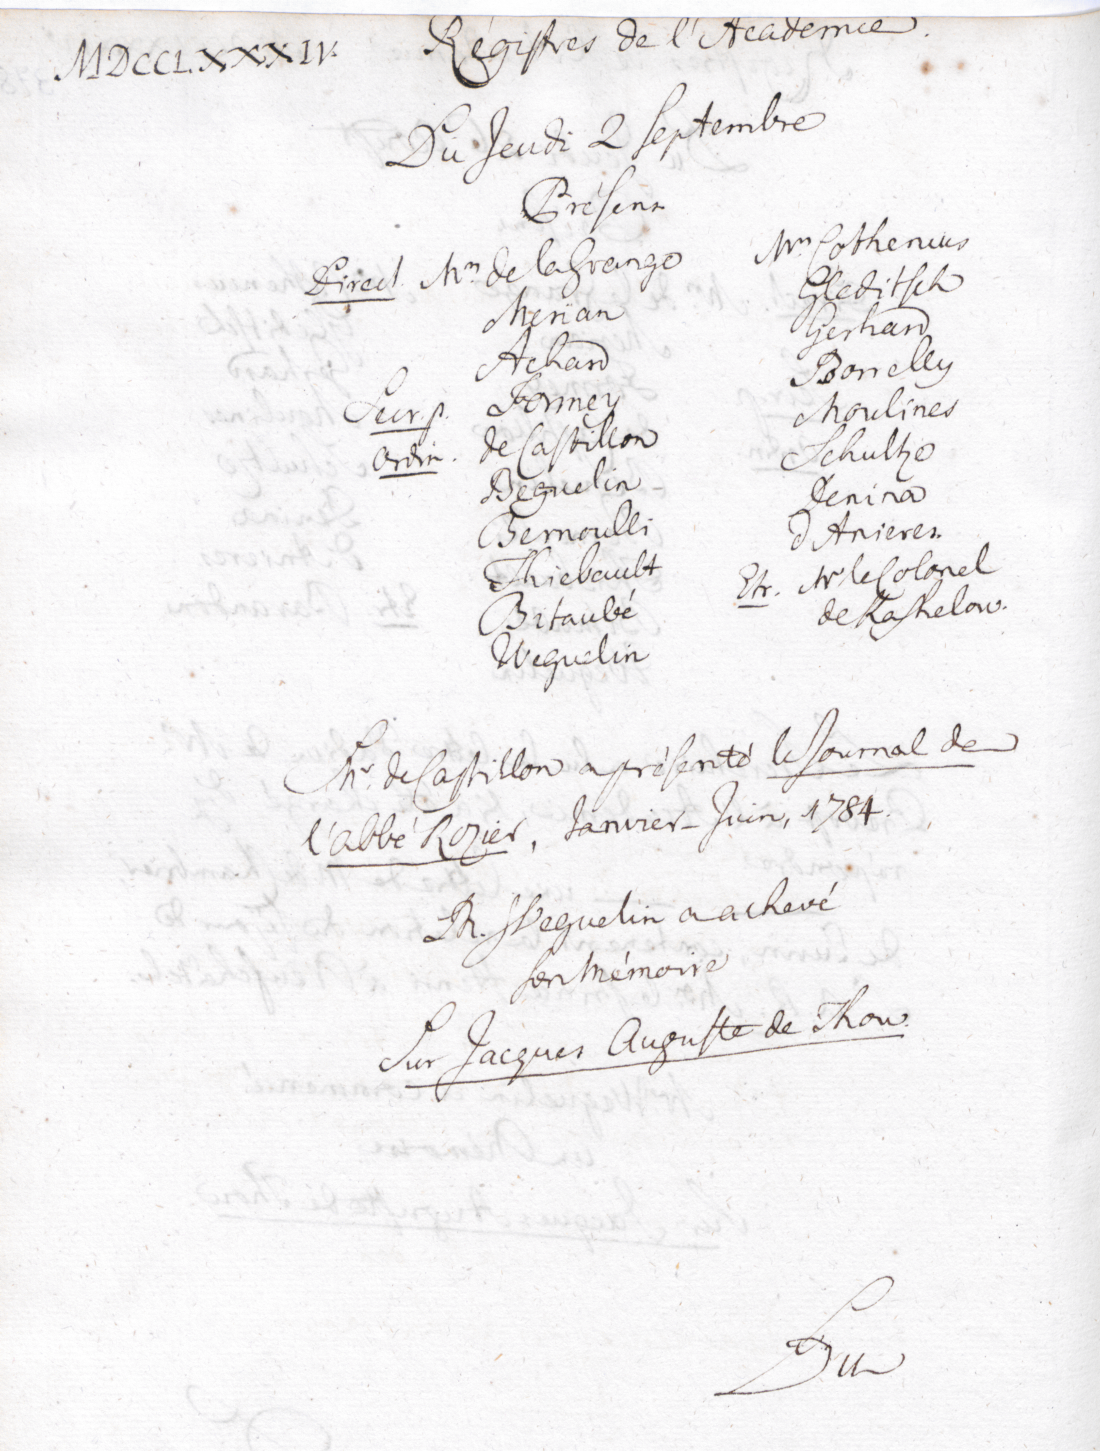 MDCCLXXXIV.
Régistres de l'Academie.
Du Jeudi 2 Septembre
Présens
Direct. Mrs. de la Grange
Merian
Achard
Secr. p. Formey
Ordin. de Castillon
Beguelin
Bernoulli
Thiebault
Bitaubé
Weguelin
Mrs. Cothenius
Gleditsch
Gerhard
Borrelly
Moulines
Schultze
Denina
d'Anieres
Etr. Mr. le Colonel
de
Mr. de Castillon a présenté le Journal de
l'abbé Rozier, Janvier-Juin, 1784.
Weguelin a achevé
son Mémoire
Sur Jacques Auguste de Thou.
Du